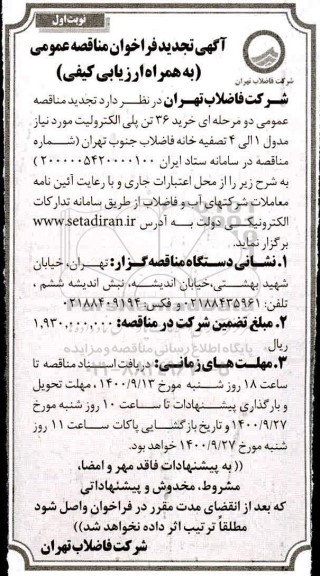 نوبت اول
شرکت فاضلاب تهران
آگهی تجدید فراخوان مناقصه عمومی
(به همراه ارزیابی کیفی)
شرکت فاضلاب تهران در نظر دارد تجدید مناقصه
عمومی دو مرحله ای خرید ۳۶ تن پلی الکترولیت مورد نیاز
مدول ۱ الی ۴ تصفیه خانه فاضلاب جنوب تهران (شماره
مناقصه در سامانه ستاد ایران ۲۰۰۰۰۰۵۴۲۰۰۰۰۱۰۰)
به شرح زیر را از محل اعتبارات جاری و با رعایت آئین نامه
معاملات شرکتهای آب و فاضلاب از طریق سامانه تدارکات
الکترونیکی دولت به آدرس www.setadiran.ir
برگزار نماید.
۱. نشانی دستگاه مناقصه گزار: تهران، خیابان
شهید بهشتی، خیابان اندیشه، نبش اندیشه ششم ،
تلفن: ۰۲۱۸۸۴۳۵۹۶۱ و فکس: ۰۲۱۸۸۴۰۹۱۹۴
۲. مبلغ تضمین شرکت در مناقصه: ۱,۹۳۰,۰۰۰,۰۰۰
ریال
پایگاه اطلاع رسانی مناقصه و مزایده
۳. مهلت های زمانی: دریافت اسناد مناقصه تا
ساعت ۱۸ روز شنبه مورخ ۱۴۰۰/۹/۱۳ ، مهلت تحویل
و بارگذاری پیشنهادات تا ساعت ۱۰ روز شنبه مورخ
۱۴۰۰/۹/۲۷ و تاریخ بازگشایی پاکات ساعت ۱۱ روز
شنبه مورخ ۱۴۰۰/۹/۲۷ خواهد بود.
(( به پیشنهادات فاقد مهر و امضا،
مشروط، مخدوش و پیشنهاداتی
که بعد از انقضای مدت مقرر در فراخوان واصل شود
مطلقاً ترتیب اثر داده نخواهد شد))
شرکت فاضلاب تهران